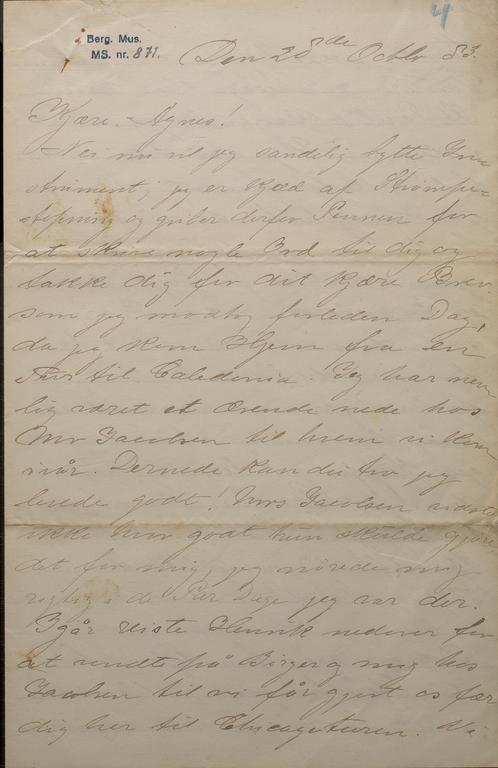 4
Berg. Mus.
MS. nr. 871.
Den 28de Octbr 83.
Kjære Agnes!
Nei nu vil jeg sandelig bytte In-
strument, jeg er kjed af Strømpe-
stopning og griber derfor Pennen for
at skrive nogle Ord til dig og
takke dig for dit kjære Brev,
som jeg modtog forleden Dag,
da jeg kom Hjem fra en
Tur til Caledonia. Jeg har nem-
lig været et Ærende nede hos
Mr Jacobsen til hvem vi kom
ivår. Dernede kan du tro jeg
levede godt! Mrs Jacobsen vidste
ikke hvor godt hun skulde gjøre
det for mig, jeg
rigtig i de Par Dage jeg var der.
Igår reiste Henrik nedover for
at vendte på Birger og mig hos
Jacobsen til vi får gjort os fær-
dig her til Chicagoturen. Vi